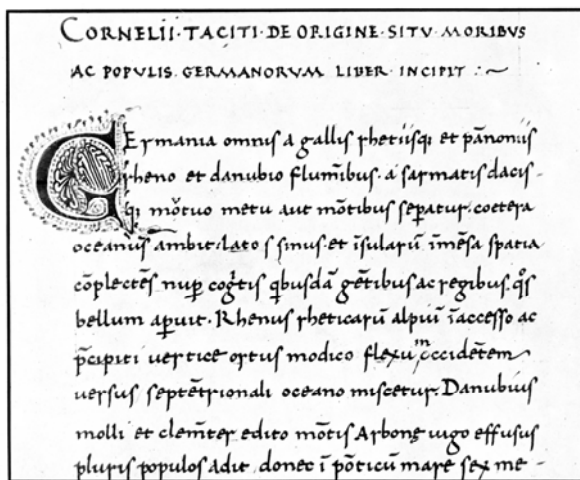 CORNELII · TACITI · DE ORIGINE · SITV · MORIBVS
AC POPVLIS · GERMANORVM LIBER · INCIPIT :~
GErmania omnis a gallis rhetiisq; et pãnoniis
rheno et danubio flumĩbus · a sarmatis dacis-
q; mõtuo metu aut mõtibus sepatur · coetera
oceanus ambit · lato s sinus · et ĩsularũ ĩmẽsa spatia
cõplectẽs nup cogtis qbusdã gẽtibus ac regibus · qos
bellum apuit · Rhenus rheticarũ alpiũ ĩaccesso ac
pcipiti vertice ortus modico flexu m occidẽtem
versus septẽtrionali oceano miscetur · Danubius
molli et clemẽter edito mõtis Arbonę iugo effusus
pluris populos adit donec ĩ põticũ mare sex me-